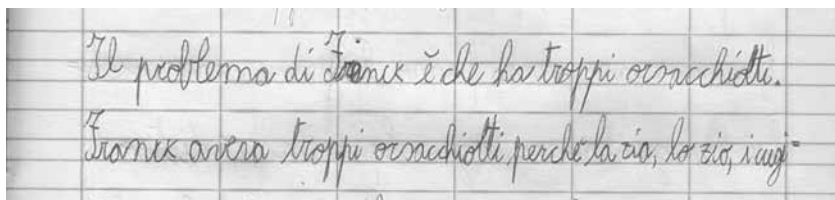 Il problema di Franck è che ha troppi orsacchiotti.
Franck aveva troppi orsacchiotti perché la zia, lo zio, i cugi-